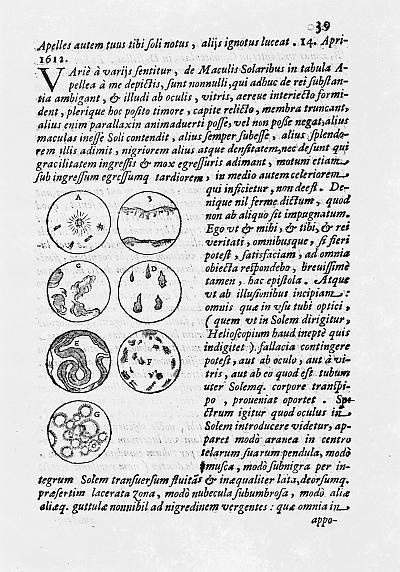 39
Apelles autem tuus tibi soli notus, alijs ignotus luceat. 14. Apri-
1612.
VAriè à varijs sentitur, de Maculis Solaribus in tabula A-
pellea à me depictis, sunt nonnulli, qui adhuc de rei substan-
tia ambigant, & illudi ab oculis, vitris, aereue interiecto formi-
dent, plerique hoc posito timore, capite relicto, membra truncant,
alius enim parallaxin animaduerti posse, vel non posse negat, alius
maculas inesse Soli contendit, alius semper subesse, alius splendo-
rem illis adimit, nigriorem alius atque densitatem, nec desunt qui
gracilitatem ingressis & mox egressuris adimant, motum etiam
sub ingressum egressumq tardiorem, in medio autem celeriorem
qui inficietur, non deest. De-
nique nil ferme dictum, quod
non ab aliquo sit impugnatum.
Ego vt & mihi, & tibi, & rei
veritati, omnibusque, si fieri
potest, satisfaciam, ad omnia
obiecta respondebo, breuissimè
tamen, hac epistola. Atque
vt ab illusionibus incipiam:
omnis quæ in vsu tubi optici,
(quem vt in Solem dirigitur,
Helioscopium haud ineptè quis
indigitet) fallacia contingere
potest, aut ab oculo, aut à vi-
tris, aut ab eo quod est tubum
inter Solemq. corpore transpi-
po, proueniat oportet. Spe-
ctrum igitur quod oculus in
Solem introducere videtur, ap-
paret modò aranea in centro
telarum suarum pendula, modò
musca, modò subnigra per in-
tegrum Solem transuersum fluitās & inæqualiter lata, deorsumq.
præsertim lacerata zona, modò nubecula subumbrosa, modò aliæ
aliæq. guttulæ nonnihil ad nigredinem vergentes: quæ omnia in
appo-
A
B
C
D
E
F
G